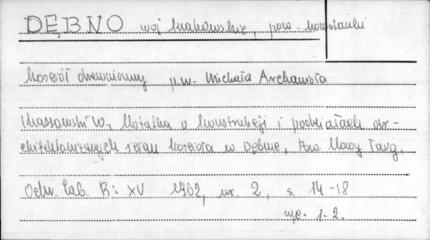 DĘBNO woj krakowskie, pow. nowotarski
kościół drewniany p.w. Michała Archanioła
Krassowski W., Notatka o konstrukcji i podziałach ar-
chitektonicznych ścian kościoła w Dębnie, pow Nowy Targ.
Ochr. Zab. R: XV 1962, nr. 2, s 14-18
ryc. 1-2.